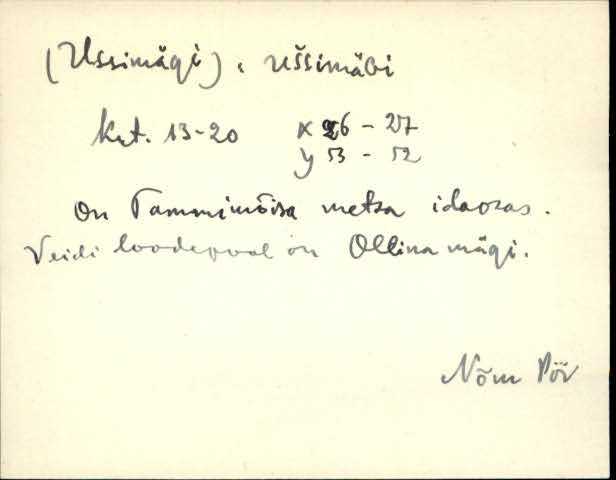 (Ussimägi), Uššimäɢi
Krt. 13-20 x 26 - 27
y 53 - 52
On Tammimõisa metsa idaosas.
Veidi loodepool on Ollina mägi.
Nõm Pöi